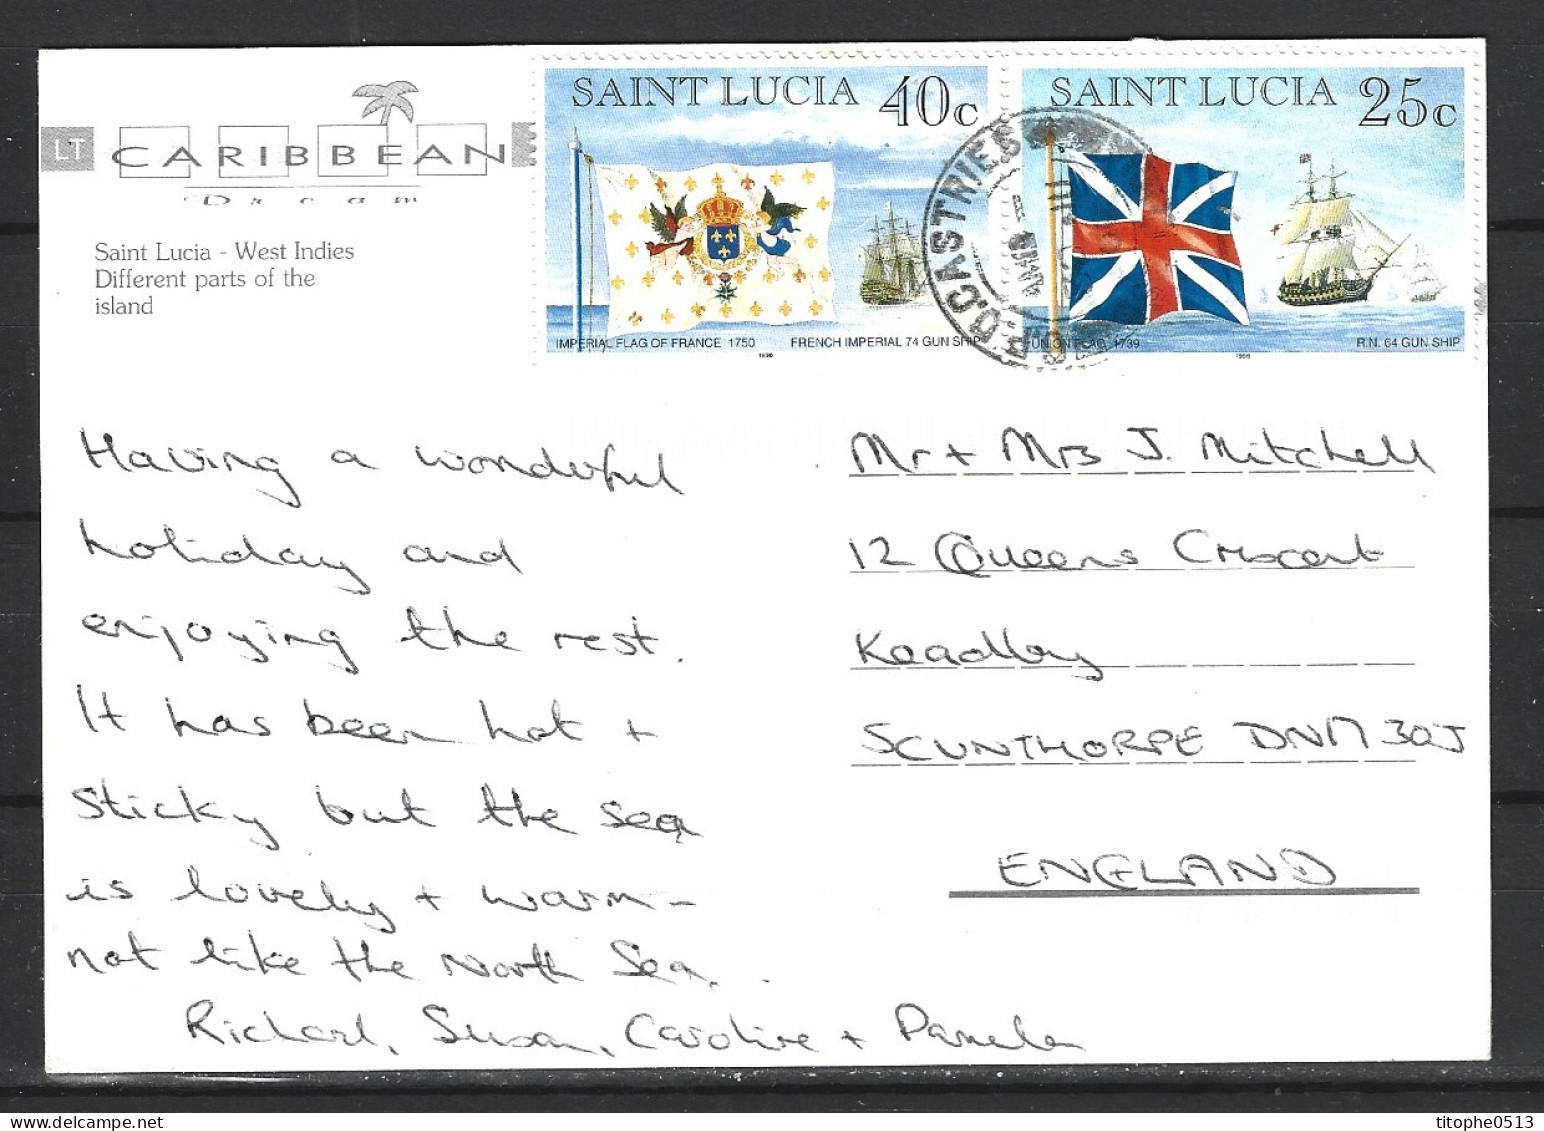 LT
CARIBBEAN
Dream
Saint Lucia - West Indies
Different parts of the
island
SAINT LUCIA 40c
IMPERIAL FLAG OF FRANCE 1750 FRENCH IMPERIAL 74 GUN SHIP
1996
SAINT LUCIA 25c
UNION FLAG 1739 R.N. 64 GUN SHIP
1996
G.P.O. CASTRIES
Having a wonderful
holiday and
enjoying the rest.
It has been hot +
sticky but the sea
is lovely + warm -
not like the North Sea.
Richard, Susan, Caroline + Pamela
Mr + Mrs J. Mitchell
12 Queens Crescent
Keadby
SCUNTHORPE DN17 3QJ
ENGLAND
titophe0513